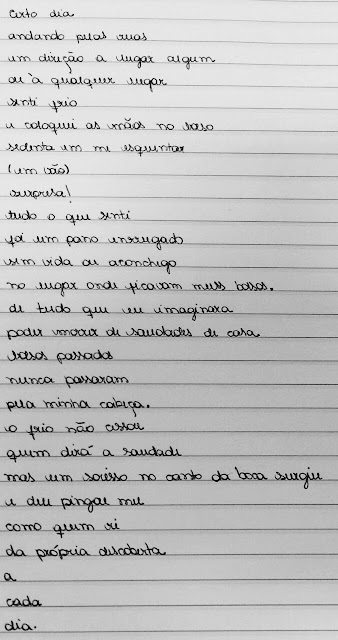 certo dia
andando pelas ruas
em direção a lugar algum
ou à qualquer lugar
senti frio
e coloquei as mãos no bolso
sedenta em me esquentar
(em vão)
surpresa!
tudo o que senti
foi um pano enrugado
sem vida ou aconchego
no lugar onde ficavam meus bolsos.
de tudo que eu imaginara
poder morrer de saudades de casa
bolsos passados
nunca passaram
pela minha cabeça.
o frio não cessou
quem dirá a saudade
mas um sorisso no canto da boca surgiu
e deu pingar me
como quem ri
da própria descoberta
a
cada
dia.